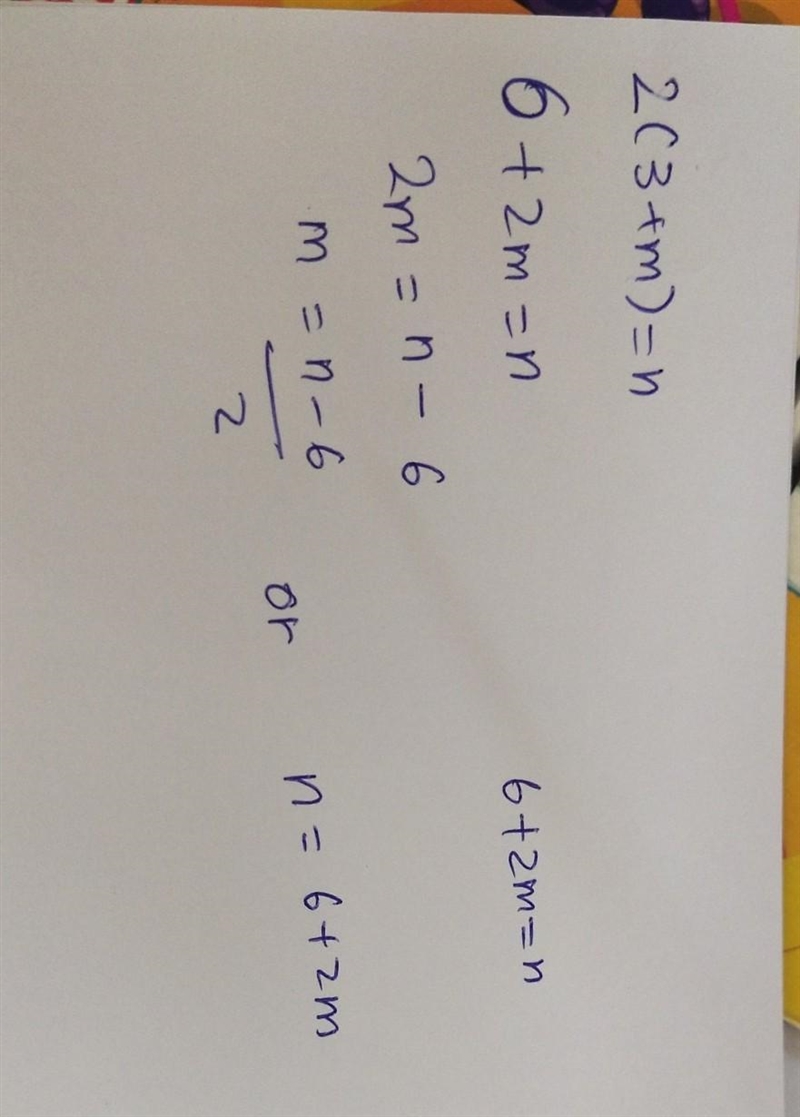 2(3+m)=n
6+2m=n 6+2m=n
2m=n-6
m=n-6 or n=6+2m
2